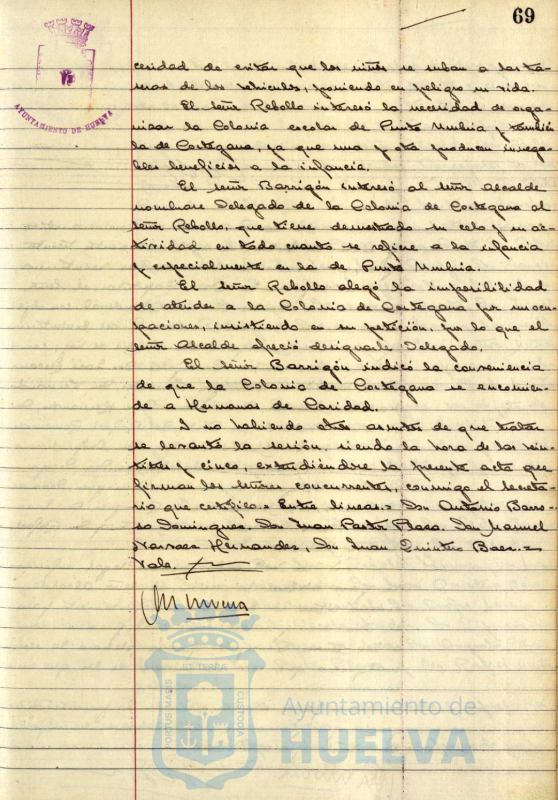 69
AYUNTAMIENTO DE HUELVA
cesidad de evitar que los niños se suban a las tra-
seras de los vehiculos, poniendo en peligro su vida.
El señor Rebollo interesó la necesidad de orga-
nizar la Colonia escolar de Punta Umbria y tambien
la de Cortegana, ya que una y otra producen innega-
bles beneficios a la infancia.
El señor Barrigón interesó al señor Alcalde
nombrase Delegado de la Colonia de Cortegana al
señor Rebollo, que tiene demostrado su celo y su ac-
tividad en todo cuanto se refiere a la infancia
y especialmente en la de Punta Umbria.
El señor Rebollo alegó la imposibilidad
de atender a la Colonia de Cortegana por sus ocu-
paciones, insistiendo en su petición, por lo que el
señor Alcalde ofreció designarle Delegado.
El señor Barrigón indicó la conveniencia
de que la Colonia de Cortegana se encomien-
de a Hermanas de Caridad.
I no habiendo otros asuntos de que tratar
se levantó la sesión, siendo la hora de las vein-
titres y cinco, extendiéndose la presente acta que
firman los señores concurrentes, conmigo el Secreta-
rio que certifico.= Entre lineas.= Don Antonio Barro-
so Dominguez, Don Juan Pastor Don Manuel
Narvaez Hernandez, Don Juan Quintero Baez.=
Vale.
ET TERRAE
PORTUS MARIS
CUSTODIA
Ayuntamiento de
HUELVA